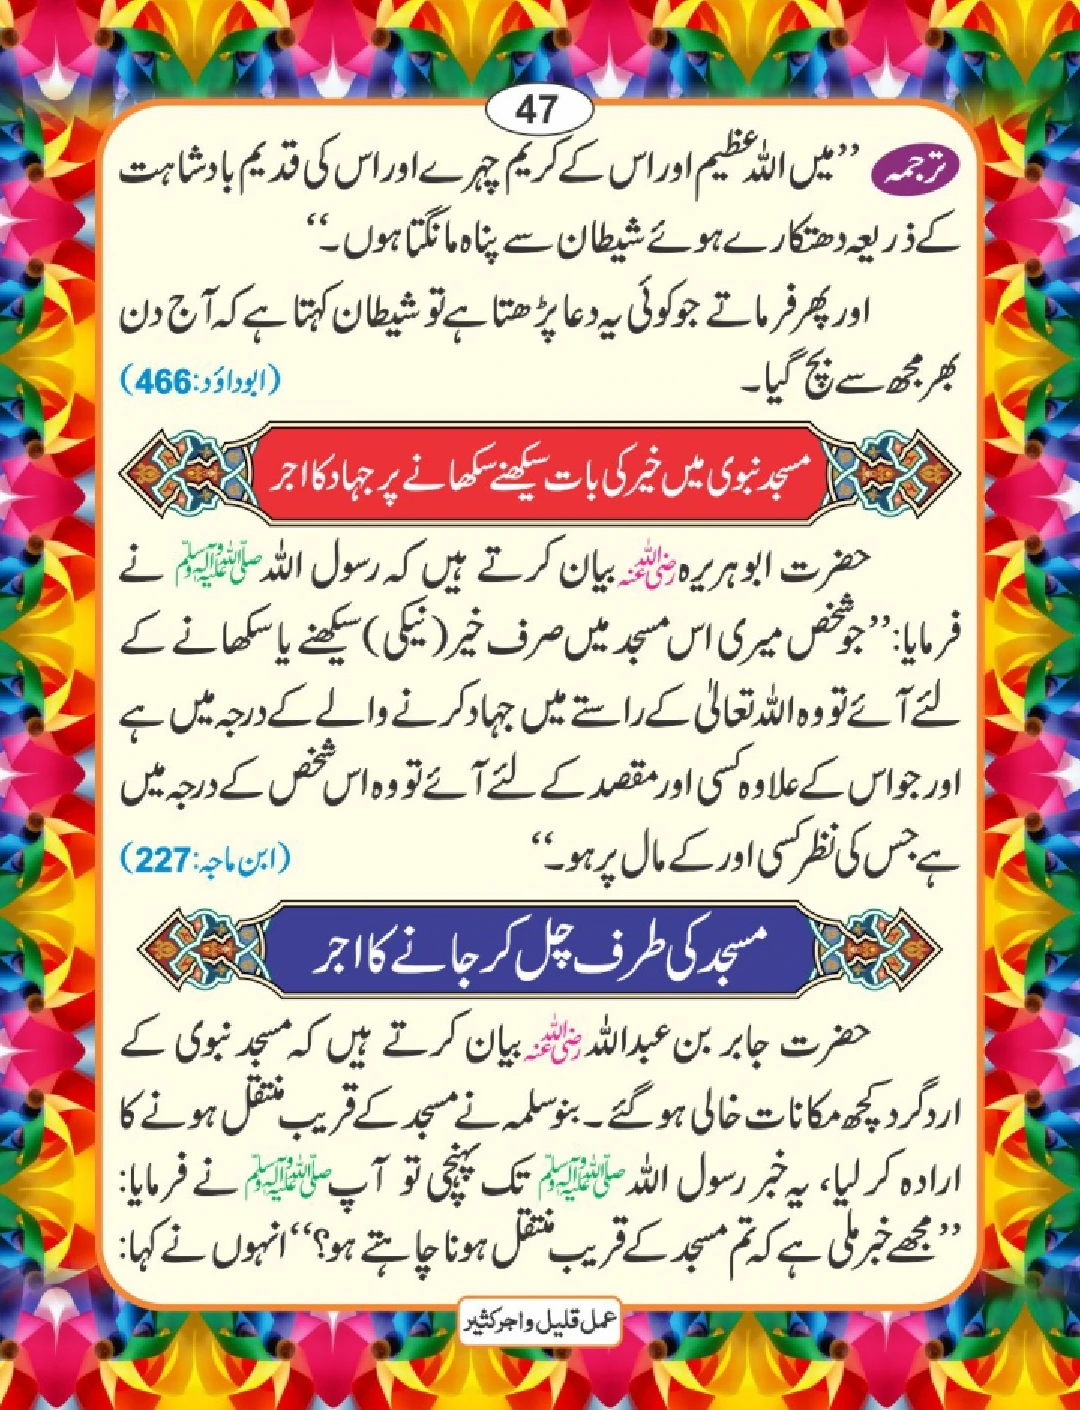 47
ترجمہ ’’میں اللہ عظیم اور اس کے کریم چہرے اور اس کی قدیم بادشاہت
کے ذریعہ دھتکارے ہوئے شیطان سے پناہ مانگتا ہوں۔‘‘
اور پھر فرماتے جو کوئی یہ دعا پڑھتا ہے تو شیطان کہتا ہے کہ آج دن
بھر مجھ سے بچ گیا۔ (ابوداؤد:466)
مسجد نبوی میں خیر کی بات سیکھنے سکھانے پر جہاد کا اجر
حضرت ابوہریرہ رضی اللہ عنہ بیان کرتے ہیں کہ رسول اللہ صلی اللہ علیہ وسلم نے
فرمایا:’’جو شخص میری اس مسجد میں صرف خیر (نیکی) سیکھنے یا سکھانے کے
لئے آئے تو وہ اللہ تعالیٰ کے راستے میں جہاد کرنے والے کے درجہ میں ہے
اور جو اس کے علاوہ کسی اور مقصد کے لئے آئے تو وہ اس شخص کے درجہ میں
ہے جس کی نظر کسی اور کے مال پر ہو۔‘‘ (ابن ماجہ:227)
مسجد کی طرف چل کر جانے کا اجر
حضرت جابر بن عبداللہ رضی اللہ عنہ بیان کرتے ہیں کہ مسجد نبوی کے
اردگرد کچھ مکانات خالی ہو گئے۔ بنو سلمہ نے مسجد کے قریب منتقل ہونے کا
ارادہ کر لیا، یہ خبر رسول اللہ صلی اللہ علیہ وسلم تک پہنچی تو آپ صلی اللہ علیہ وسلم نے فرمایا:
’’مجھے خبر ملی ہے کہ تم مسجد کے قریب منتقل ہونا چاہتے ہو؟‘‘ انہوں نے کہا:
عمل قلیل و اجر کثیر